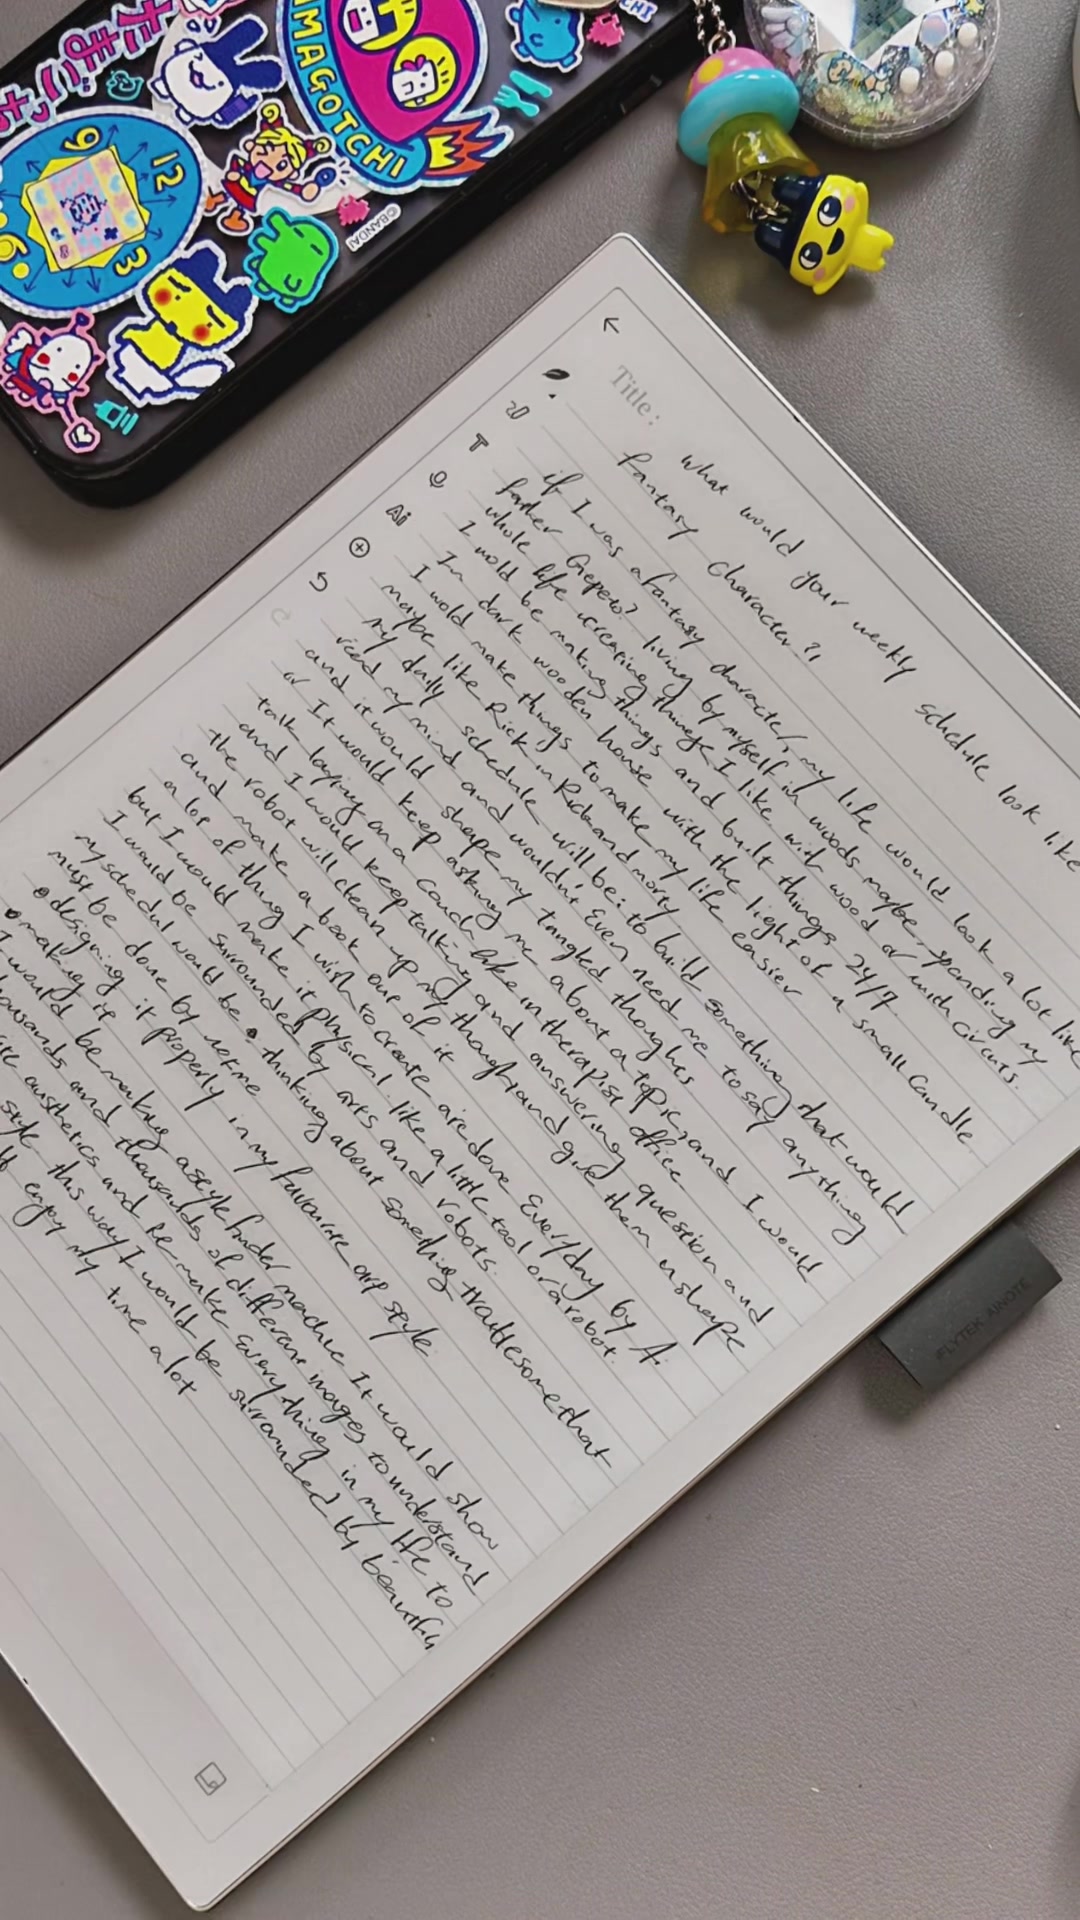 たまごっち
TAMAGOTCHI
CHI
9
12
3
6
©BANDAI
Title :
T
Ai
What would your weekly schedule look like
fantasy character?
if I was a fantasy character, my life would look a lot like
father Gepeto? living by myself in woods maybe, spending my
whole life creating things I like with wood or with circuts.
I wold be making things and built things 24/7.
In dark wooden house with the light of a small Candle.
I wold make things to make my life easier
maybe like Rick in Rick and morty
my daily schedule will be: to build something that would
read my mind and wouldn't Even need me to say anything
and it would shape my tangled thoughts
or It would keep asking me about a topic, and I would
talk laying on a couch like in therapist office
and I would keep talking and answering question and
the robot will clean up my thought and give them a shape
and make a book out of it
a lot of thing I wish to create are done Everyday by Ai
but I would make it physical. like a little tool or a robot.
I would be surrounded by arts and robots.
my schedul would be • thinking about something troublesome that
must be done by not me
designing it properly in my favourite art style.
• making it
I would be making a style finder machine It would show
thousands and thousands of different images to understand
aesthetics and Re make Everything in my life to
style this way I would be surrounded by beautiful
enjoy my time a lot
iFLYTEK AINOTE